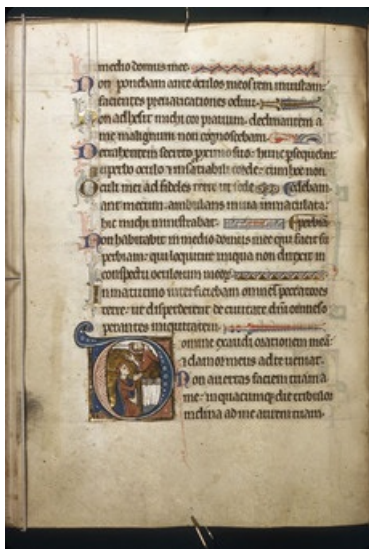 medio domus mee
Non ponebam ante oculos meos rem iniustam:
facientes preuaricationes odiui
Non adhesit michi cor prauum: declinantem a
me malignum non cognoscebam.
Detrahentem secreto proximo suo: hunc persequebar
Superbo oculo et insatiabili corde: cum hoc non
Oculi mei ad fideles terre ut sede edebam
ant mecum: ambulans in uia immaculata:
hic michi ministrabat. superbia
Non habitabit in medio domus mee qui facit su
perbiam: qui loquitur iniqua non direxit in
conspectu oculorum meorum
In matutino interficiebam omnes peccatores
terre: ut disperderem de ciuitate domini omnes o
perantes iniquitatem
Domine exaudi orationem mea
clamor meus ad te ueniat.
Non auertas faciem tuam a
me: in quacumque die tribulor
inclina ad me aurem tuam.